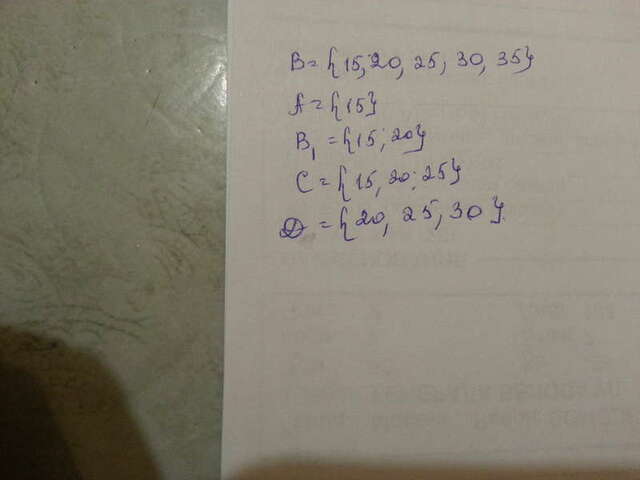 B = {15; 20, 25; 30, 35}
A = {15}
B₁ = {15; 20}
C = {15, 20; 25}
D = {20, 25, 30}